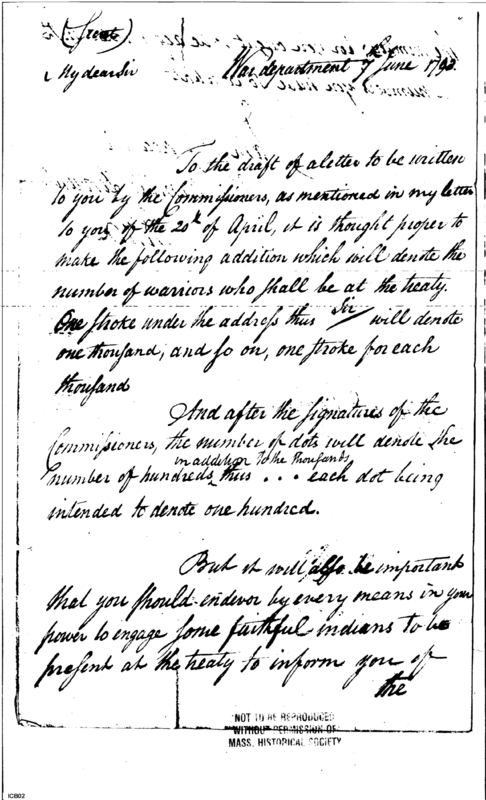 (Private)
My dear Sir
War department 7 June 1793.
To the draft of a letter to be written
to you by the Commissioners, as mentioned in my letter
to you, of the 20th of April, it is thought proper to
make the following addition which will denote the
number of warriors who shall be at the treaty.
One stroke under the address thus Sir/ will denote
one thousand, and so on, one stroke for each
thousand
And after the signatures of the
Commissioners, the number of dots will denote the
in addition to the thousands
number of hundreds thus . . . each dot being
intended to denote one hundred.
But it will also be important
that you should endevor by every means in your
power to engage some faithful indians to be
present at the treaty to inform you of
the
NOT TO BE REPRODUCED
WITHOUT PERMISSION OF
MASS. HISTORICAL SOCIETY
ICB02